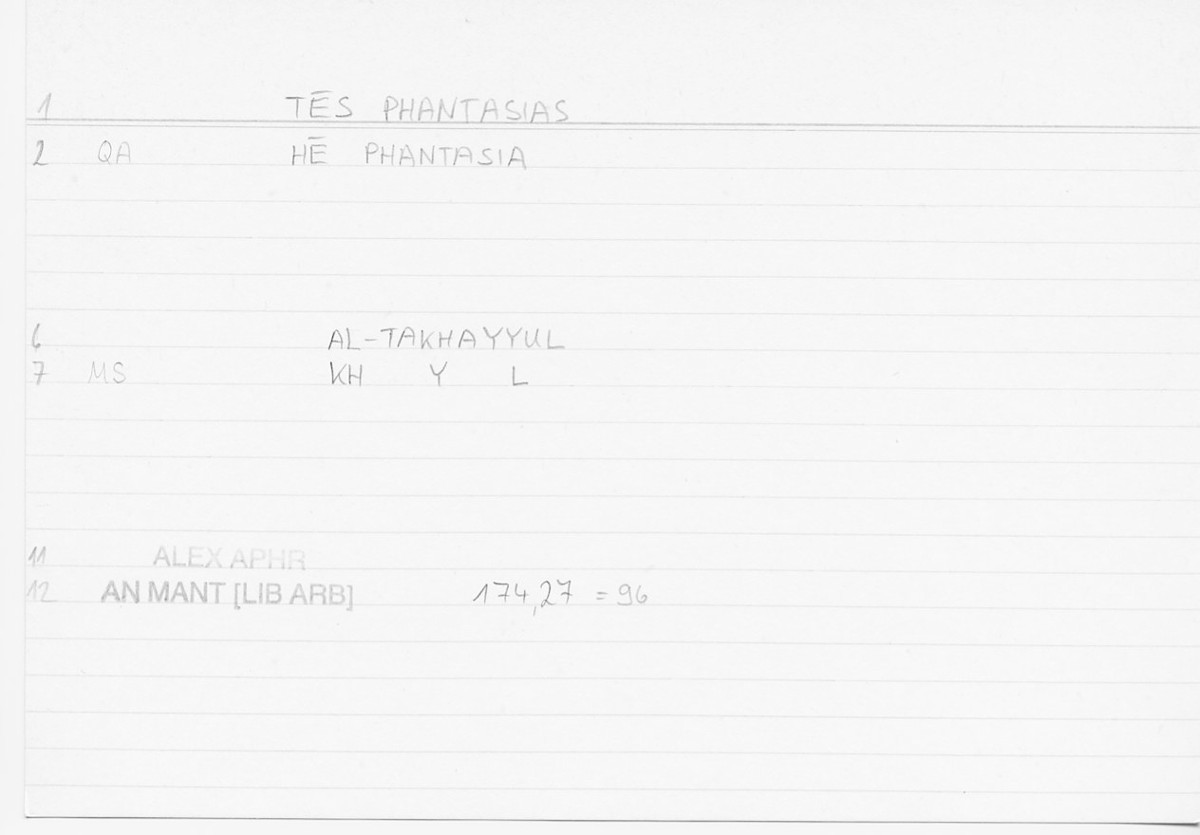 1 TĒS PHANTASIAS
2 QA HĒ PHANTASIA
6 AL-TAKHAYYUL
7 MS KH Y L
11 ALEX APHR
12 AN MANT [LIB ARB] 174,27 = 96